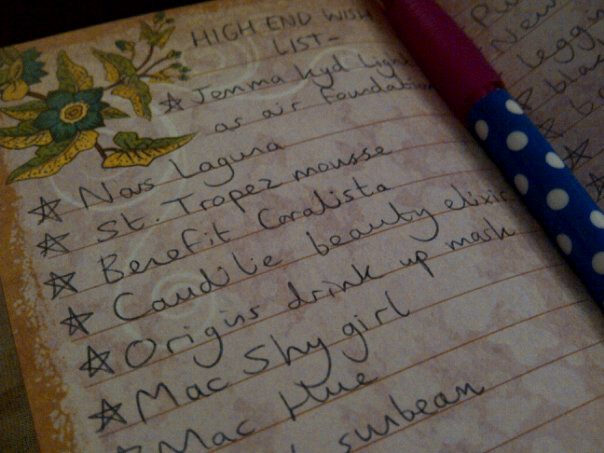 HIGH END WISH
LIST-
Jemma kyd Light
as air foundation
Nars Laguna
St. Tropez mousse
Benefit Coralista
Caudilie beauty elixir
Origins drink up mask
Mac Shy girl
Mac Hue
sunbeam
New
leggi
blac